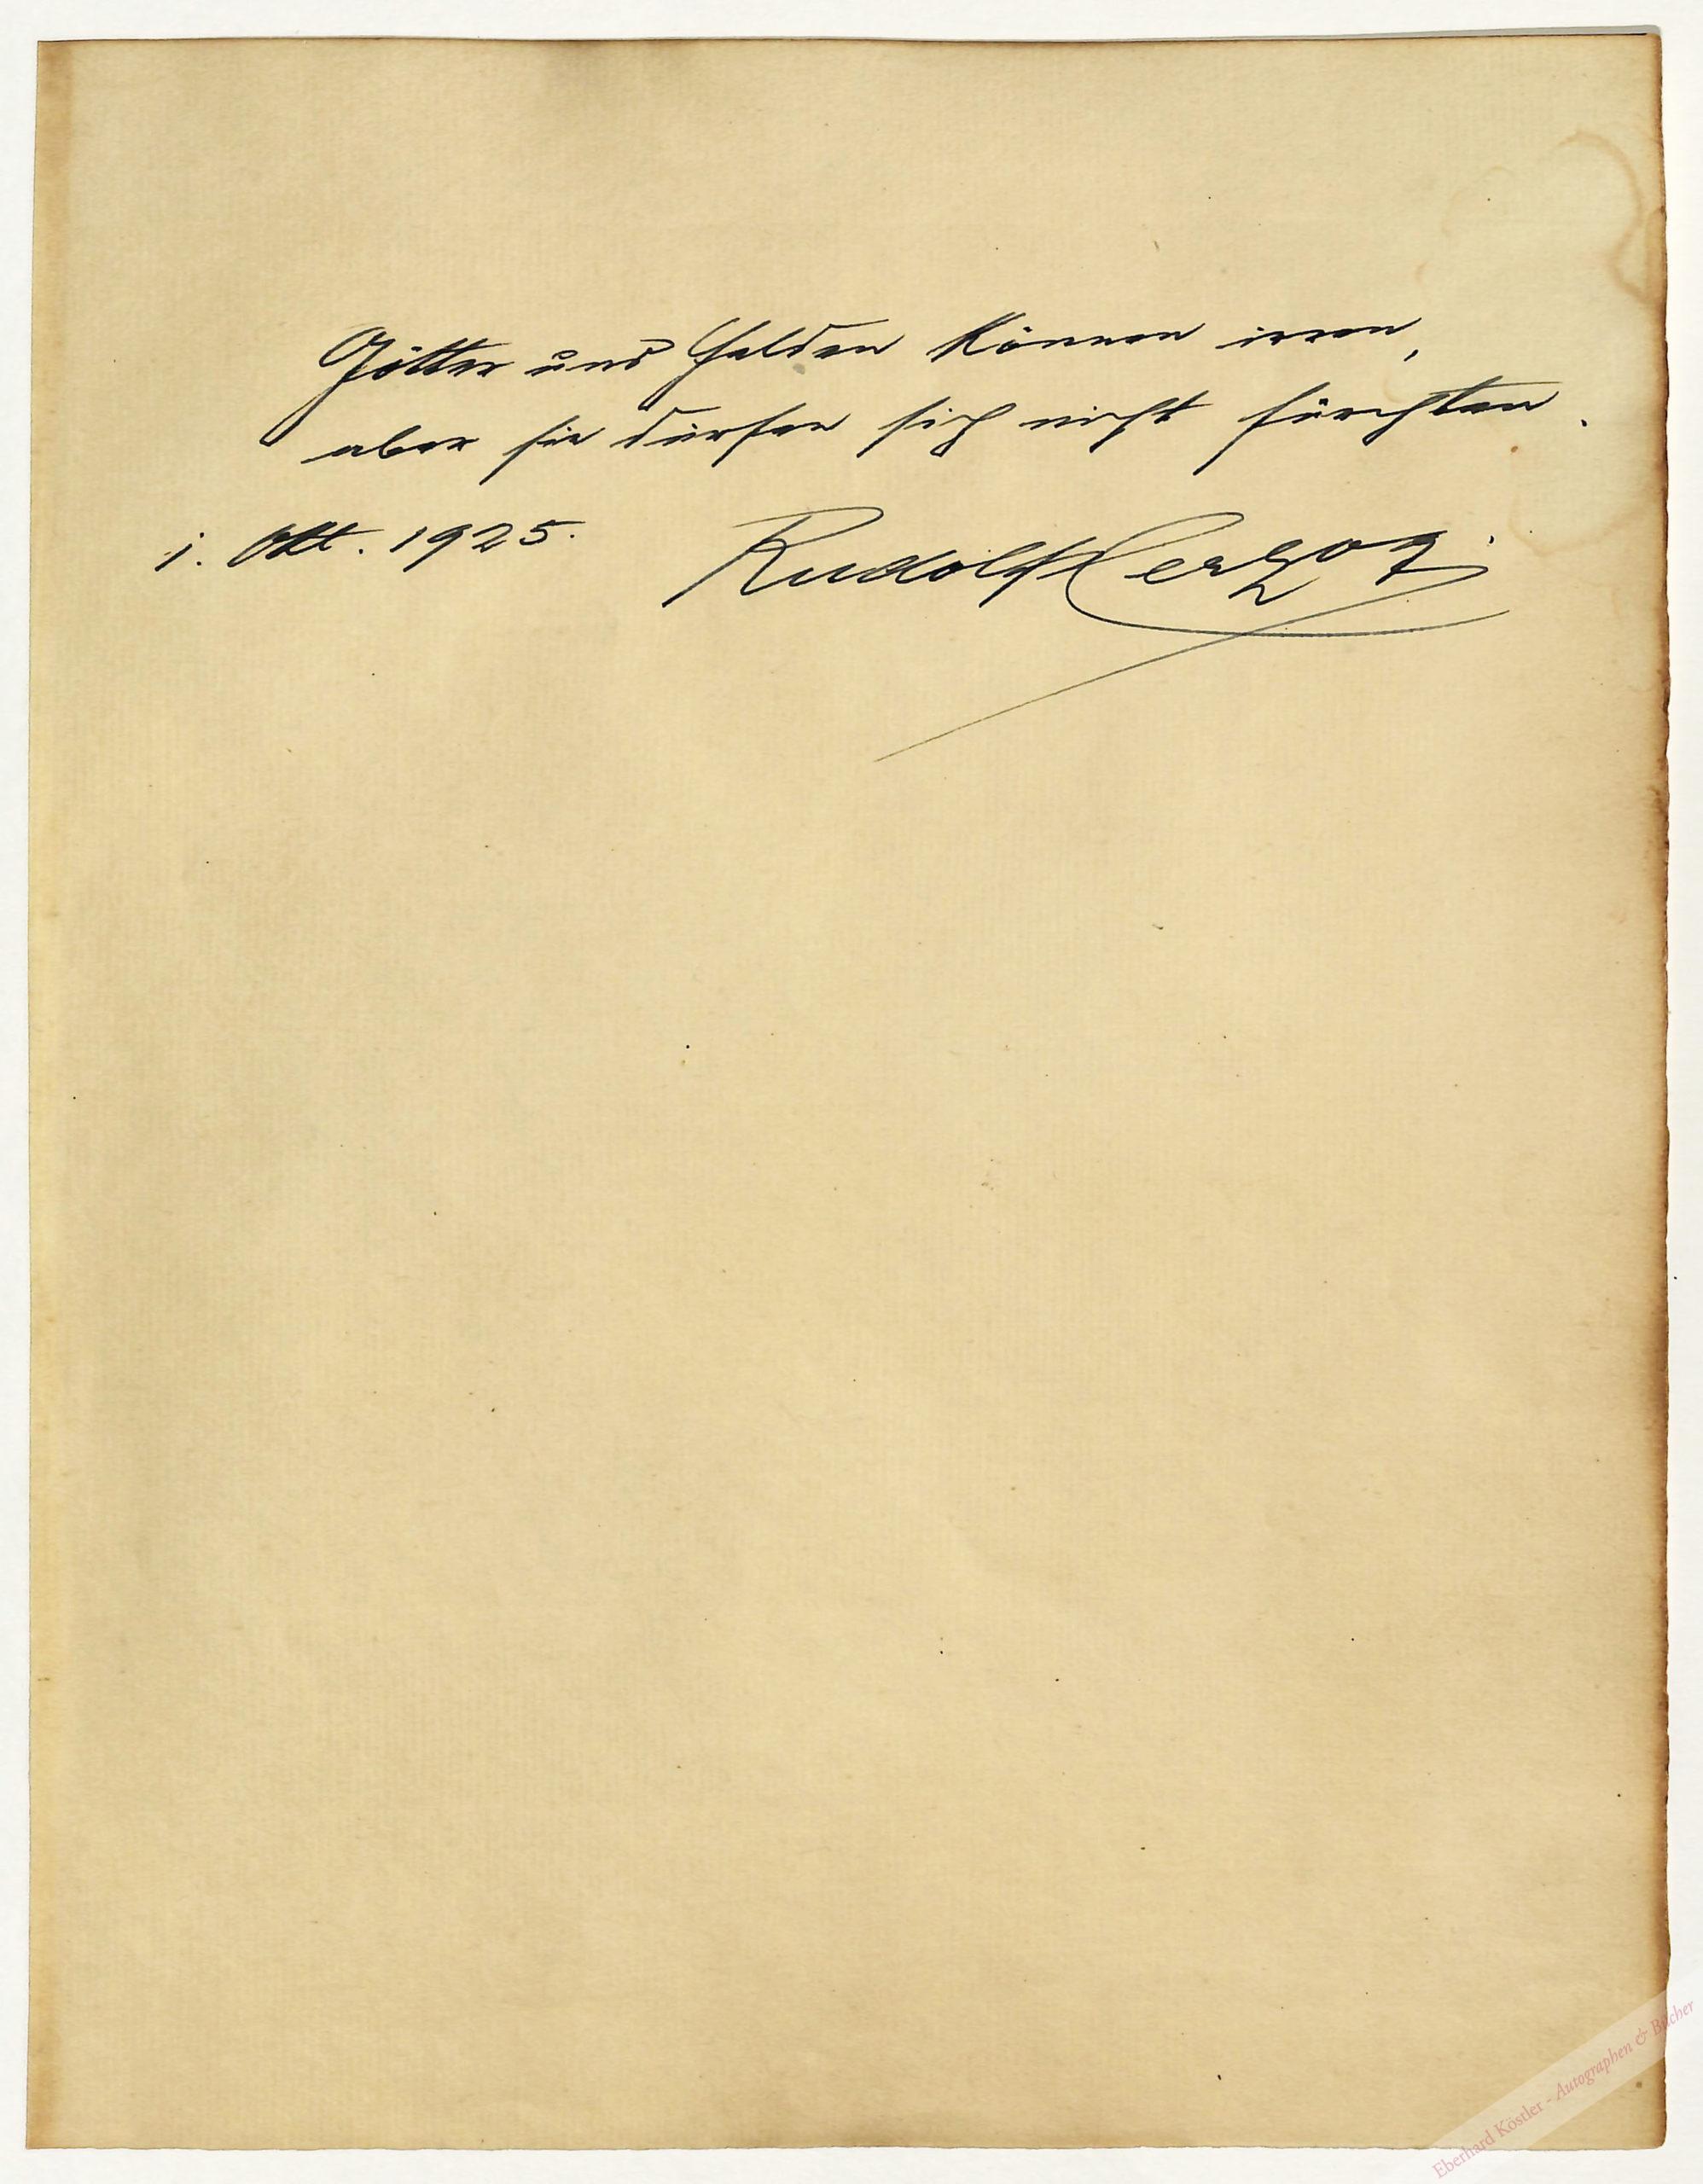 Götter und Helden können irren,
aber sie dürfen sich nicht fürchten.
1. Okt. 1925. Rudolf Herzog.
Eberhard Köstler - Autographen & Bücher